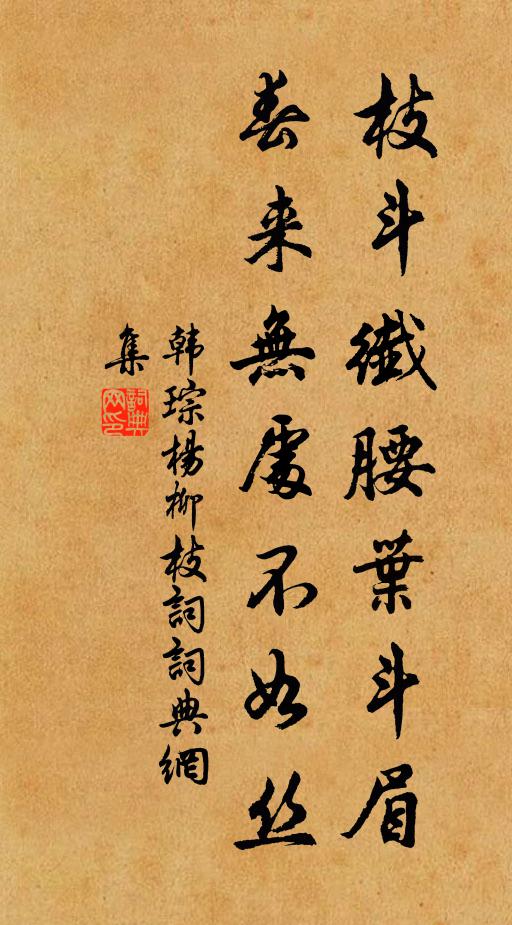 枝斗纖腰葉斗眉
春来無處不如丝
韩琮楊柳枝詞詞典網
集
詞典
网印